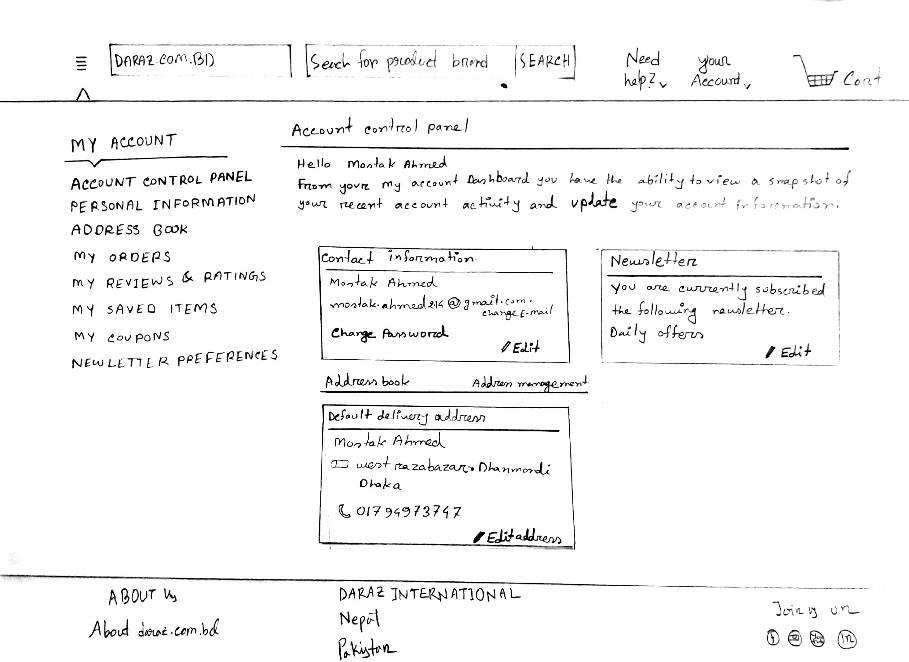 DARAZ.COM.BD
Seach for product brand
SEARCH
Need help?
your Account
Cart
MY ACCOUNT
ACCOUNT CONTROL PANEL
PERSONAL INFORMATION
ADDRESS BOOK
MY ORDERS
MY REVIEWS & RATINGS
MY SAVED ITEMS
MY COUPONS
NEWLETTER PREFERENCES
Account control panel
Hello Mostak Ahmed
From your my account Dashboard you have the ability to view a snapshot of
your recent account activity and update your account information.
Contact information
Mostak Ahmed
mostak.ahmed214@gmail.com.
change E-mail
Change Password
Edit
Newsletter
you are currently subscribed
the following newsletter.
Daily offers
Edit
Address book
Address management
Default delivery address
Mostak Ahmed
west razabazar. Dhanmondi
Dhaka
01794973747
Edit address
ABOUT Us
About daraz.com.bd
DARAZ INTERNATIONAL
Nepal
Pakistan
Join us on
in